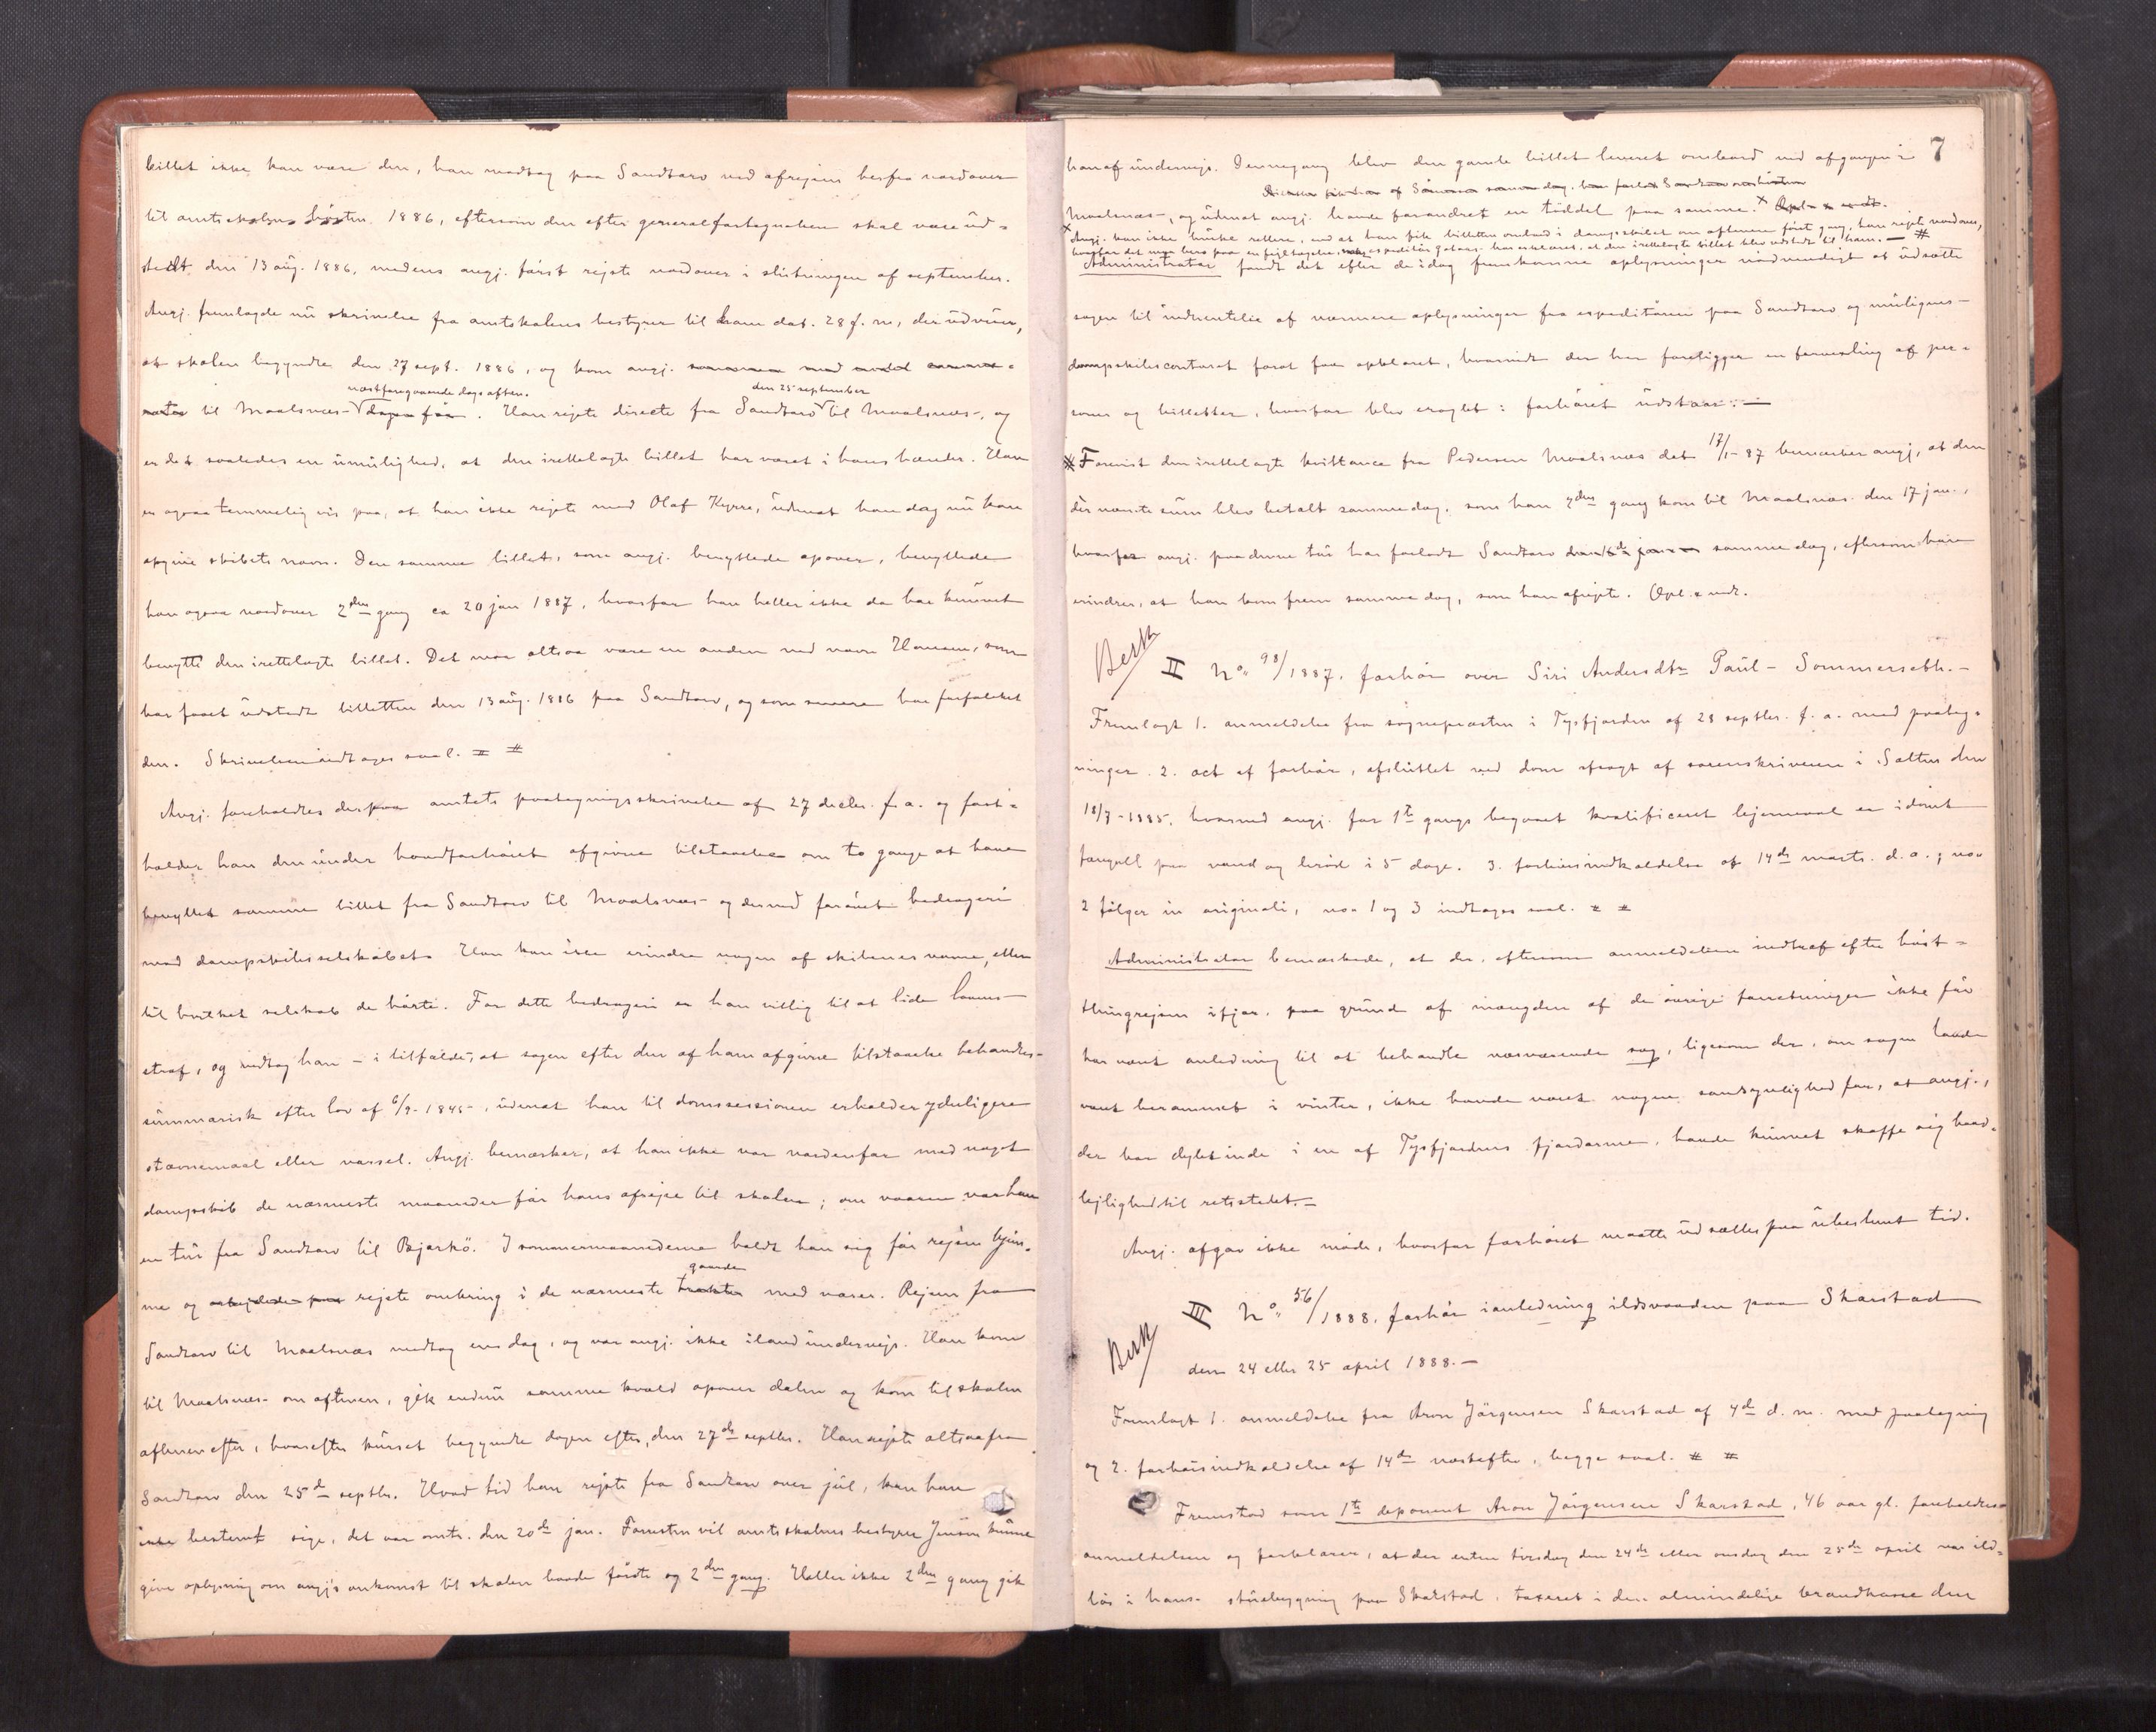 billet ikke kan være den, han modtog paa Sandtorv ved afrejsen herfra nordover
til amtsskolen høsten 1886, eftersom den efter generalfortegnelsen skal være ud-
stedt den 13 aug. 1886, medens angj. først rejste nordover i slutningen af september.
Angj. fremlagde nu skrivelse fra amtskolens bestyrer til ham dat. 28 f. m., der udviser,
at skolen begyndte den 27 sept. 1886, og kom angj. sammen med
næstforegaaende dags aften. den 25 september
til Maalsnes dagen før. Han rejste directe fra Sandtorv til Maalsnes, og
er det saaledes en umulighed, at den irettelagte billet har været i hans hænder. Han
er ogsaa temmelig vis paa, at han ikke rejste med Olaf Kyrre, uden at han dog nu kan
opgive skibets navn. Den samme billet, som angj. benyttede opover, benyttede
han ogsaa nordover 2den gang ca 20 jan 1887, hvorfor han heller ikke da har kunnet
benytte den irettelagte billet. Det maa altsaa være en anden med navn Hansen, som
har faaet udstedt billetten den 13 aug. 1886 paa Sandtorv, og som senere har forfalsket
den. Skrivelsen indtages saal. # #
Angj. foreholdtes derpaa amtets paategningsskrivelse af 27 decbr. f. a. og fast-
holder han den under hovedforhøret afgivne tilstaaelse om to gange at have
benyttet samme billet fra Sandtorv til Maalsnes og derved forøvet bedrageri
mod dampskibsselskabet. Han kan ikke erindre nogen af skibenes navne, eller
til hvilket selskab de hørte. For dette bedrageri er han villig til at lide lovens
straf, og vedtog han – i tilfælde, at sagen efter den af ham afgivne tilstaaelse behandles
summarisk efter lov af 6/9-1845-, uden at han til domssessionen erholder yderligere
stævnemaal eller varsel. Angj. bemærker, at han ikke var nordenfor med noget
dampskib de nærmeste maaneder før hans afrejse til skolen; om vaaren var han
en tur fra Sandtorv til Bjarkø. I sommermaanederne holdt han sig før rejsen hjem-
gaarde
me og arbejdede paa rejste omkring i de nærmeste trakter med varer. Rejsen fra
Sandtorv til Maalsnes medtog en dag, og var angj. ikke iland undervejs. Han kom
til Maalsnes om aftenen, gik endnu samme kveld opover dalen og kom til skolen
aftenen efter, hvorefter kurset begyndte dagen efter, den 27de septbr. Han rejste altsaa fra
Sandtorv den 25de septbr. Hvad tid han rejste fra Sandtorv over jul, kan han
ikke bestemt sige, det var omtr. den 20de jan. Forresten vil amtsskolens bestyrer Jensen kunne
give oplysning om angj's ankomst til skolen baade første og 2den gang. Heller ikke 2den gang gik
7
han af undervejs. Dennegang blev den gamle billet leveret ombord ved afgangen i
samme dag. han forlod Sandtorv
Maalsnes, og uden at angj. havde forandret en tøddel paa samme. x Opl. & vedt.
x Angj. kan ikke huske rettere, end at han fik billetten ombord i dampskibet om aftenen først gang, han rejste nordover,
hvorfor det maa bero paa en fejltagelse, naar expeditør har erklæret, at den irettelagte billet blev udstedt til ham. — #
Administrator fandt det efter de idag fremkomne oplysninger nødvendigt at udsætte
sagen til indhentelse af nærmere oplysninger fra expeditøren paa Sandtorv og muligens
dampskibscontoret forat faa opklaret, hvorvidt der her foreligger en forvexling af per-
soner og billetter, hvorfor blev eragtet: forhøret udstaar. —
# Forevist den irettelagte kvittance fra Pedersen Maalsnes dat 17/1-87 bemærker angj, at den
der nævnte sum blev betalt samme dag, som han 2den gang kom til Maalsnes den 17 jan.,
hvorfor angj. paa denne tur har forladt Sandtorv samme dag, eftersom han
erindrer, at han kom frem samme dag, som han afrejste. Opl. & vedt.
Besk
II No. 98/1887, forhør over Siri Andersdtr Paul-Sommersebh.-
Fremlagt 1. anmeldelse fra sognepræsten i Tysfjorden af 28 septbr. f. a. med paateg-
ninger. 2. act af forhør, afsluttet ved dom afsagt af sorenskriveren i Salten den
18/7-1885, hvorved angj. for 1te gangs begaaet kvalificeret lejermaal er idømt
fængsel paa vand og brød i 5 dage. 3. forhørsindkaldelse af 14de marts d. a.; no.
2 følger in originali, no. 1 og 3 indtages saal. # #
Administrator bemærkede, at der, eftersom anmeldelsen indtraf efter høst-
thingrejsen ifjor, paa grund af mængden af de øvrige forretninger ikke før
har været anledning til at behandle nærværende sag, ligesom der, om sagen havde
været berammet i vinter, ikke havde været nogen sandsynlighed for, at angj.,
der bor dybt inde i en af Tysfjordens fjordarme, havde kunnet skaffe sig baad-
lejlighed til retsstedet. —
Angj. afgav ikke møde, hvorfor forhøret maatte udsættes paa ubestemt tid.
Besk
III No. 56/1888, forhør i anledning ildsvaaden paa Skarstad
den 24 eller 25 april 1888. —
Fremlagt 1. anmeldelse fra Aron Jørgensen Skarstad af 4de d. m. med paategning
og 2. forhørsindkaldelse af 14de næstefter, begge saal. # #
Fremstod som 1te deponent Aron Jørgensen Skarstad, 46 aar gl. foreholdtes
anmeldelsen og forklarer, at der enten tirsdag den 24de eller onsdag den 25de april var ild-
løs i hans stuebygning paa Skarstad, taxeret i den almindelige brandkasse den